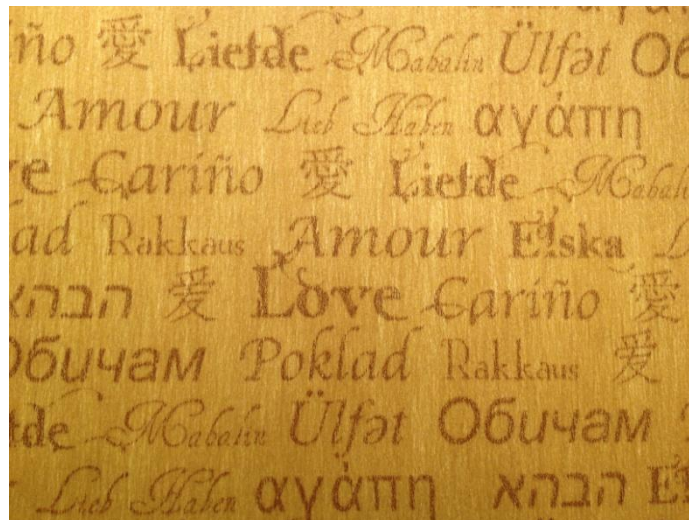 ño 愛 Liefde Mahalin Ülfət Об
Amour Lieb Haben αγάπη
e Cariño 愛 Liefde Mahali
ad Rakkaus Amour Elska L
הבהא 爱 Love Cariño 愛
Обичам Poklad Rakkaus 爱
de Mahalin Ülfət Обичам
Lieb Haben αγάπη הבהא El